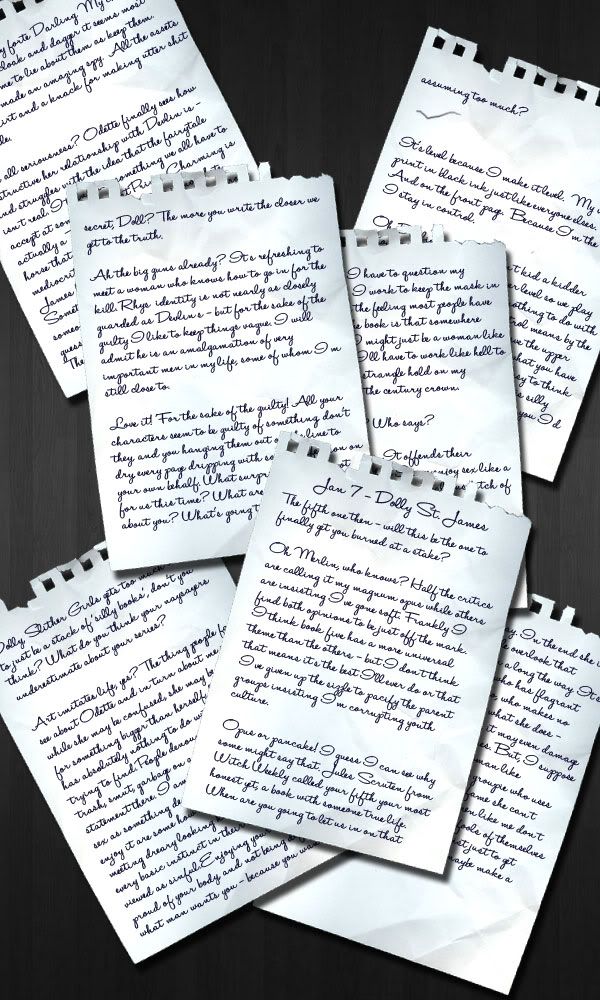 y forte Darling. My
cloak and dagger it seems most
me to lie about them as keep them.
made an amazing spy. All the assets
irt and a knack for making utter shit
de.
all seriousness? Odette finally sees how
structive her relationship with Devlin is -
nd struggles with the idea that the fairytale
isn't real. I
something we all have to
accept at som
Prin Charming is
actually a
horse that
mediocrit
James
Some
someo
guess
The
assuming too much?
It's level because I make it level. My i
print in black ink just like everyone elses.
And on the front page. Because I'm the
I stay in control.
n't kid a kidder
er level so we play
othing to do with
rol means by the
ve the upper
hat you have
sy to think
s silly
you I'd
secret, Doll? The more you write the closer we
get to the truth.
Ah the big guns already? It's refreshing to
meet a woman who knows how to go in for the
kill. Rhys' identity is not nearly as closely
guarded as Devlin's - but for the sake of the
guilty I like to keep things vague. I will
admit he is an amalgamation of very
important men in my life, some of whom I'm
still close to.
Love it! For the sake of the guilty! All your
characters seem to be guilty of something don't
they and you hanging them out line to
dry every page dripping with so on
your own behalf. What surpr
for us this time? What are
about you? What's going t
I have to question my
I work to keep the mask in
the feeling most people have
e book is that somewhere
might just be a woman like
I'll have to work like hell to
strangle hold on my
the century crown.
? Who says?
It offends their
enjoy sex like a
tch of
Jan 7 - Dolly St. James
The fifth one then - will this be the one to
finally get you burned at a stake?
Oh Merlin, who knows? Half the critics
are calling it my magnum opus while others
are insisting I've gone soft. Frankly I
find both opinions to be just off the mark.
I think book five has a more universal
theme than the others - but I don't think
that means it's the best I'll ever do or that
I've given up the sizzle to pacify the parent
groups insisting I'm corrupting youth
culture.
Opus or pancake! I guess I can see why
some might say that, Jules Scruten from
Witch Weekly called your fifth your most
honest yet, a book with someone true life.
When are you going to let us in on that
Dolly Slither Girls gets too much
to just be a stack of 'silly books', don't you
think? What do you think your naysayers
underestimate about your series?
Art imitates life, yes? The thing people f
see about Odette and in turn about me
while she may be confused, she may b
for something bigger than herself
has absolutely nothing to do w
trying to find. People denou
trash, smut, garbage on a
statement there. I am
sex as something de
enjoy it are some how
meeting dreary looking
every basic instinct in the
viewed as sinful. Enjoying your
proud of your body and not being a
what man wants you - because you wan
y. In the end she i
overlook that
along the way. It's
who has flagrant
who makes no
what she does -
it may even damage
es. But, I suppose
man like
groupie who uses
ame she can't
en like we don't
ools of themselves
st just to get
maybe make a